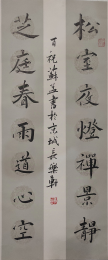 松室夜燈禪景靜
芝庭春雨道心空
書於京城長樂軒